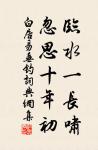 臨水一長嘯
忽思十年初
白居易垂釣詞典網集